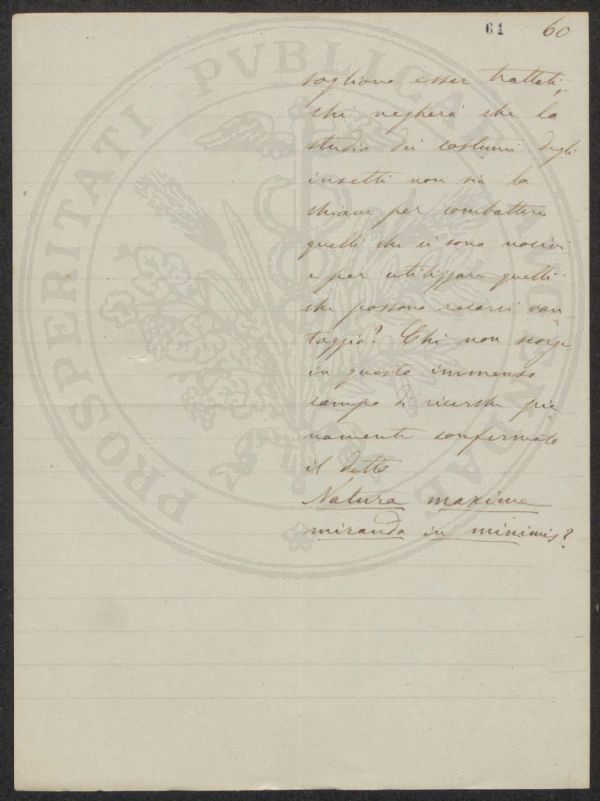 61 60
sogliono esser trattati,
chi negherà che lo
studio dei costumi degli
insetti non sia la
chiave per combattere
quelli che ci sono nocivi
e per utilizzare quelli
che possono recarci van
taggio? Chi non scorge
in questo immenso
campo di ricerche pie
namente confermato
il detto
Natura maxime
miranda in minimis?
PROSPERITATI PVBLICAE AVGENDAE